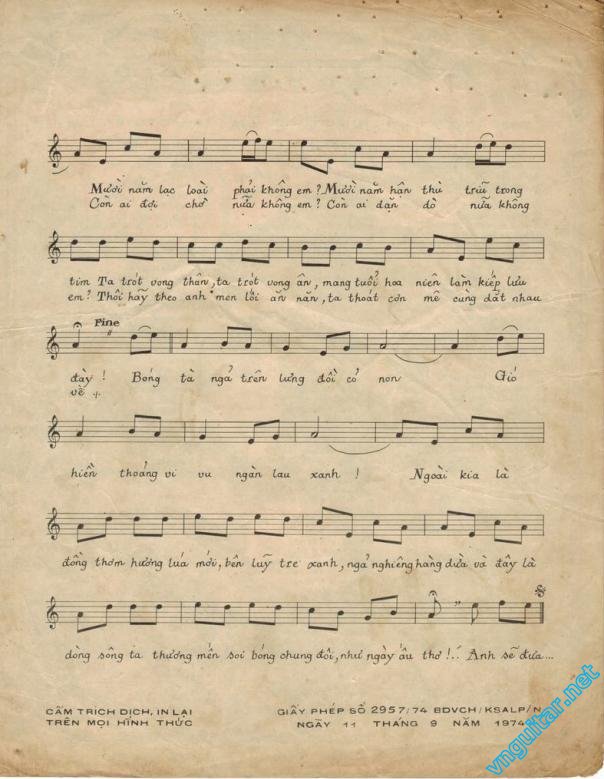 Mười năm lạc loài phải không em? Mười năm hận thù trĩu trong
Còn ai đợi chờ nữa không em? Còn ai dặn dò nữa không
tim Ta trót vong thân, ta trót vong ân, mang tuổi hoa niên làm kiếp lưu
em? Thôi hãy theo anh men lối ăn năn, ta thoát cơn mê cùng dắt nhau
Fine
đày! Bóng tà ngả trên lưng đồi cỏ non Gió
về
hiền thoảng vi vu ngàn lau xanh! Ngoài kia là
đồng thơm hương lúa mới, bên luỹ tre xanh, ngả nghiêng hàng dừa và đây là
dòng sông ta thương mến soi bóng chung đôi, như ngày ấu thơ!.. Anh sẽ đưa...
CẤM TRÍCH DỊCH, IN LẠI
TRÊN MỌI HÌNH THỨC
GIẤY PHÉP SỐ 2957/74 BDVCH/KSALP/N
NGÀY 11 THÁNG 9 NĂM 1974
vnguitar.net